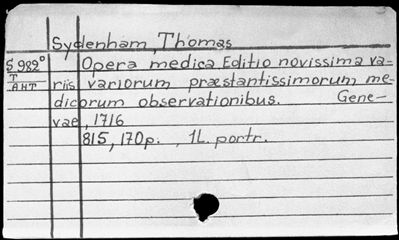 Sydenham, Thomas
S 982° Opera medica Editio novissima va-
T
AHT riis variorum præstantissimorum me-
dicorum observationibus. Gene-
vae, 1716
815, 170p. , 1L. portr.